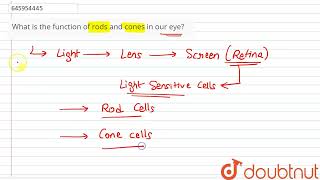 645954445
What is the function of rods and cones in our eye?
Light → Lens → Screen (Retina)
Light Sensitive Cells
→ Rod Cells
→ Cone cells
doubtnut